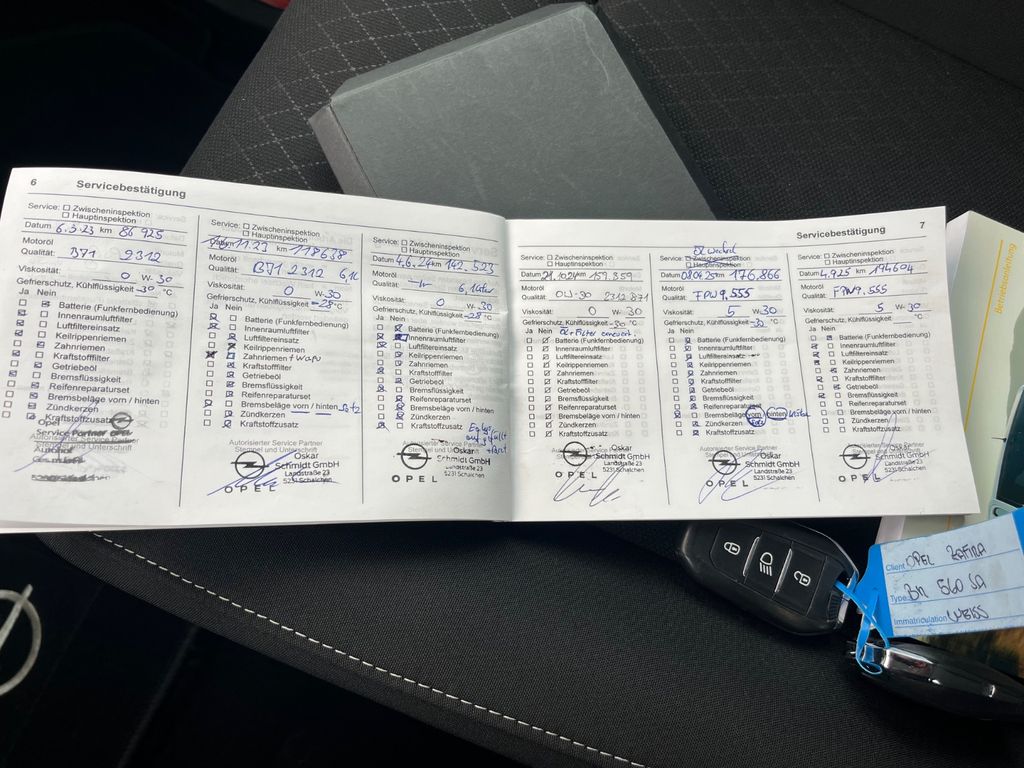 6 Servicebestätigung
Service: ☐ Zwischeninspektion
☐ Hauptinspektion
Datum 6.3.23 km 86 925
Motoröl
Qualität: B71 2312
Viskosität: 0 W-30
Gefrierschutz, Kühlflüssigkeit -30 °C
Ja Nein
Batterie (Funkfernbedienung)
Innenraumluftfilter
Luftfiltereinsatz
Keilrippenriemen
Zahnriemen
Kraftstofffilter
Getriebeöl
Bremsflüssigkeit
Reifenreparaturset
Bremsbeläge vorn / hinten
Zündkerzen
Kraftstoffzusatz
Opel
Service Partner
Autorisierter Service Partner
Stempel und Unterschrift
Service: ☐ Zwischeninspektion
☐ Hauptinspektion
Datum 11.23 km 118638
Motoröl
Qualität: B71 2312
Viskosität: 0 W-30
Gefrierschutz, Kühlflüssigkeit -28 °C
Ja Nein
Batterie (Funkfernbedienung)
Innenraumluftfilter
Luftfiltereinsatz
Keilrippenriemen
Zahnriemen + Wapu
Kraftstofffilter
Getriebeöl
Bremsflüssigkeit
Reifenreparaturset
Bremsbeläge vorn / hinten
Zündkerzen
Kraftstoffzusatz
Autorisierter Service Partner
Stempel und Unterschrift
Oskar
Schmidt GmbH
Landstraße 23
5231 Schalchen
OPEL
Service: ☐ Zwischeninspektion
☐ Hauptinspektion
Datum 4.6.24 km 142.523
Motoröl
Qualität: 6, Liter
Viskosität: 0 W-30
Gefrierschutz, Kühlflüssigkeit -28 °C
Ja Nein
Batterie (Funkfernbedienung)
Innenraumluftfilter
Luftfiltereinsatz
Keilrippenriemen
Zahnriemen
Kraftstofffilter
Getriebeöl
Bremsflüssigkeit
Reifenreparaturset
Bremsbeläge vorn / hinten
Zündkerzen
Kraftstoffzusatz
Autorisierter Service Partner
Stempel und Unterschrift
Oskar
Schmidt GmbH
Landstraße 23
5231 Schalchen
OPEL
Servicebestätigung 7
Service: ☐ Zwischeninspektion
☐ Hauptinspektion
Datum 21.10.24 km 159.359
Motoröl
Qualität OW-30 2312 B71
Viskosität: 0 W-30
Gefrierschutz, Kühlflüssigkeit -30 °C
Ja Nein Öl+Filter erneuert
Batterie (Funkfernbedienung)
Innenraumluftfilter
Luftfiltereinsatz
Keilrippenriemen
Zahnriemen
Kraftstofffilter
Getriebeöl
Bremsflüssigkeit
Reifenreparaturset
Bremsbeläge vorn / hinten
Zündkerzen
Kraftstoffzusatz
Autorisierter Service Partner
Stempel und Unterschrift
Oskar
Schmidt GmbH
Landstraße 23
5231 Schalchen
OPEL
Öl wechsel
Service: ☐ Zwischeninspektion
☐ Hauptinspektion
Datum 08.04.25 km 176.866
Motoröl
Qualität: FPW9.555
Viskosität: 5 W-30
Gefrierschutz, Kühlflüssigkeit -30 °C
Ja Nein
Batterie (Funkfernbedienung)
Innenraumluftfilter
Luftfiltereinsatz
Keilrippenriemen
Zahnriemen
Kraftstofffilter
Getriebeöl
Bremsflüssigkeit
Reifenreparaturset
Bremsbeläge vorn hinten
Zündkerzen
Kraftstoffzusatz
Autorisierter Service Partner
Stempel und Unterschrift
Oskar
Schmidt GmbH
Landstraße 23
5231 Schalchen
OPEL
Service: ☐ Zwischeninspektion
☐ Hauptinspektion
Datum 4.9.25 km 194604
Motoröl
Qualität: FPW9.555
Viskosität: 5 W-30
Gefrierschutz, Kühlflüssigkeit °C
Ja Nein
Batterie (Funkfernbedienung)
Innenraumluftfilter
Luftfiltereinsatz
Keilrippenriemen
Zahnriemen
Kraftstofffilter
Getriebeöl
Bremsflüssigkeit
Reifenreparaturset
Bremsbeläge vorn / hinten
Zündkerzen
Kraftstoffzusatz
Autorisierter Service Partner
Stempel und Unterschrift
Oskar
Schmidt GmbH
Landstraße 23
5231 Schalchen
OPEL
Betriebsanleitung
Client OPEL ZAFIRA
Type: BN 560 SA
Immatriculation WEISS